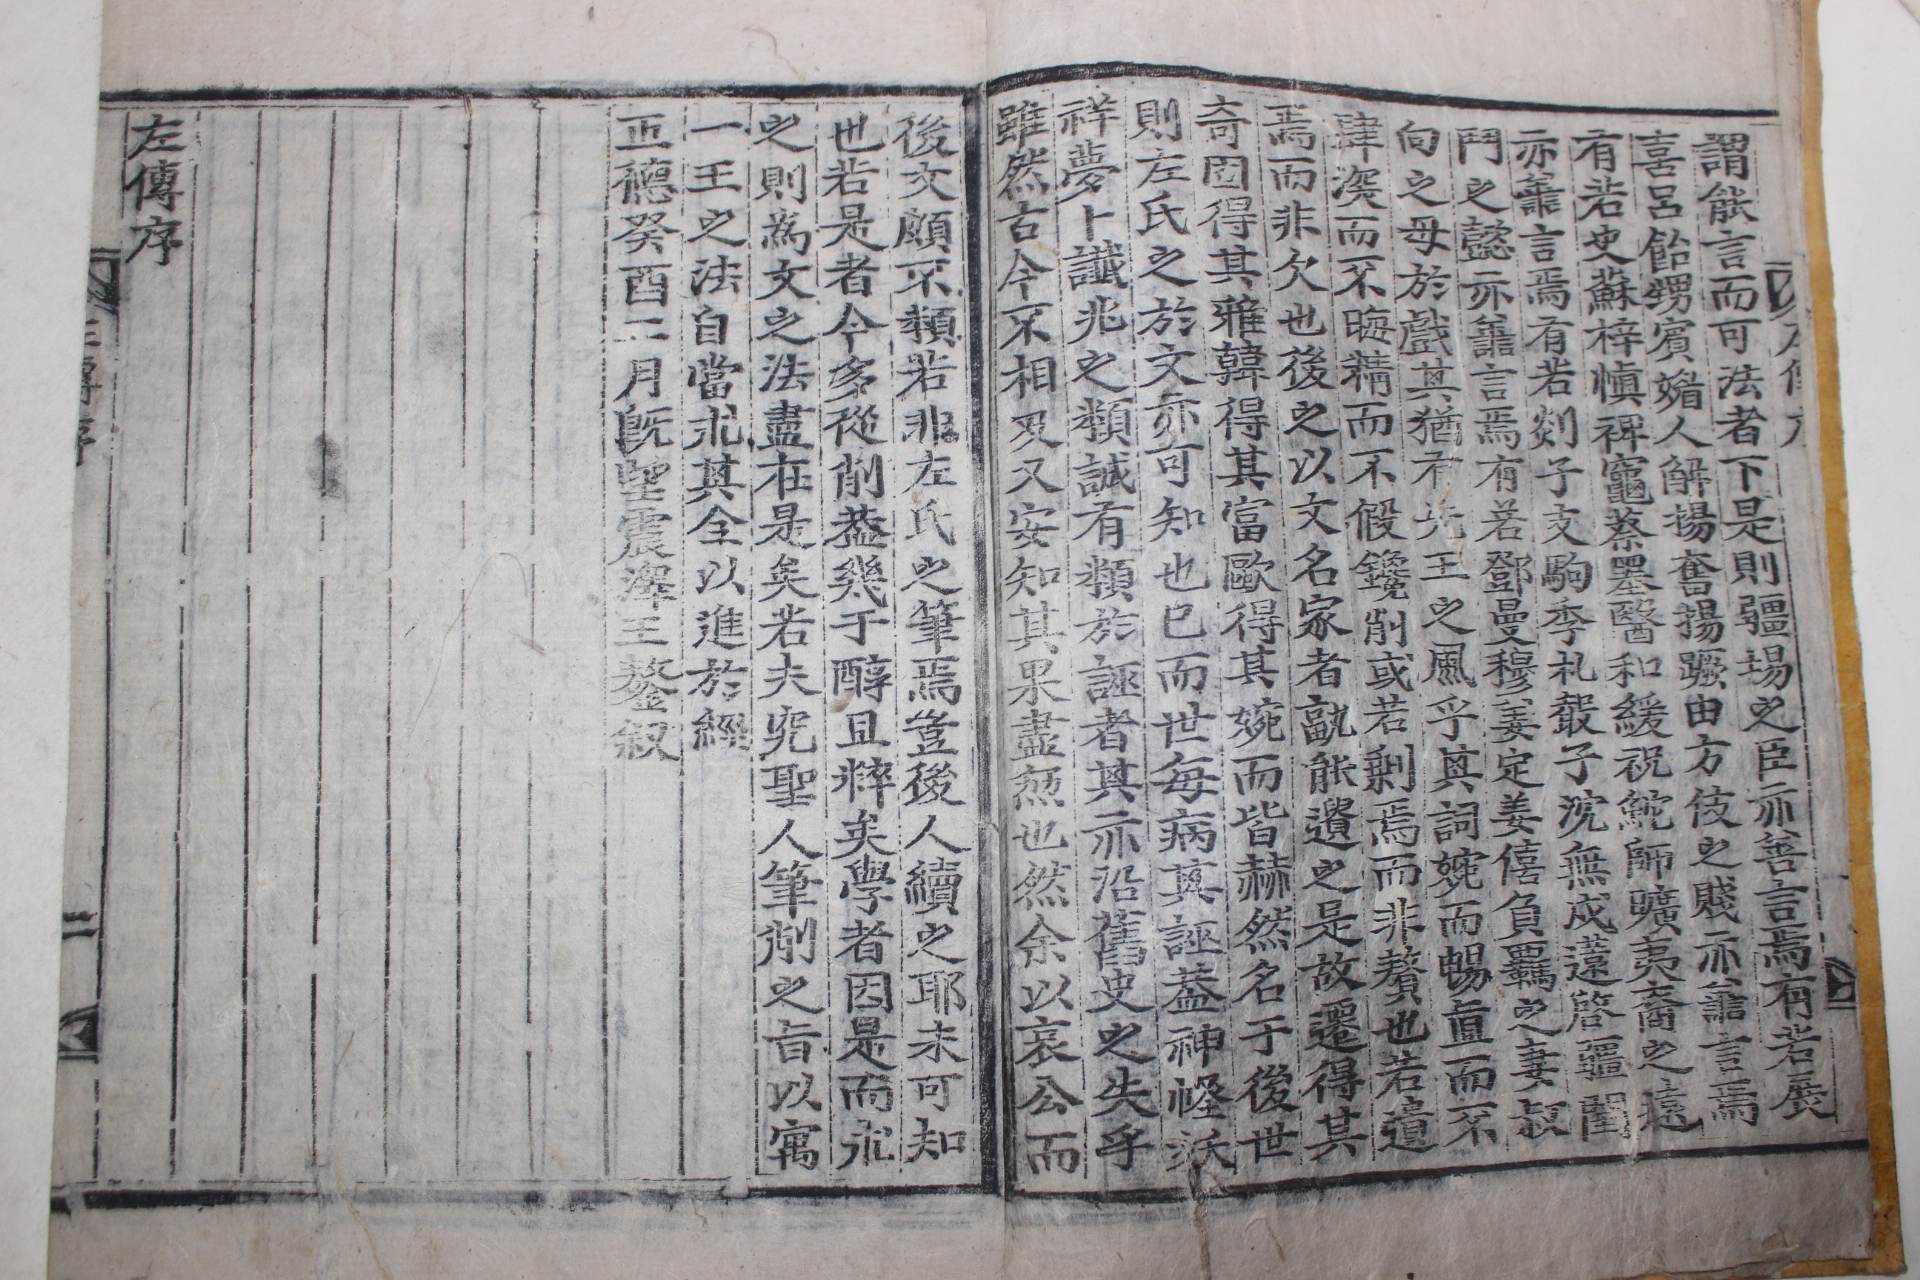 謂能言而可法者下是則疆埸之臣亦善言焉有若展
喜呂飴甥賓媚人解揚奮揚蹶由方伎之賤亦善言焉
有若史蘇梓愼裨竈蔡墨醫和緩祝鮀師曠夷裔之遠
亦善言焉有若剡子支駒季札聲子沈無戍薳啓疆閨
門之懿亦善言焉有若鄧曼穆姜定姜僖負羈之妻叔
向之母於戲其猶有先王之風乎其詞婉而暢直而不
肆深而不晦精而不假鑱削或若剩焉而非贅也若遺
焉而非欠也後之以文名家者孰能遺之是故遷得其
奇固得其雅韓得其富歐得其婉而皆赫然名于後世
則左氏之於文亦可知也已而世每病其誣蓋神怪妖
祥夢卜讖兆之類誠有類於誣者其亦沿舊史之失乎
雖然古今不相及又安知其果盡無也然余以哀公而
後文頗不類若非左氏之筆焉豈後人續之耶未可知
也若是者今多從削蓋幾于醇且粹矣學者因是而求
之則爲文之法盡在是矣若夫究聖人筆削之旨以寓
一王之法自當求其全以進於經
正德癸酉二月旣望震澤王鏊叙
左傳序
左傳序
二